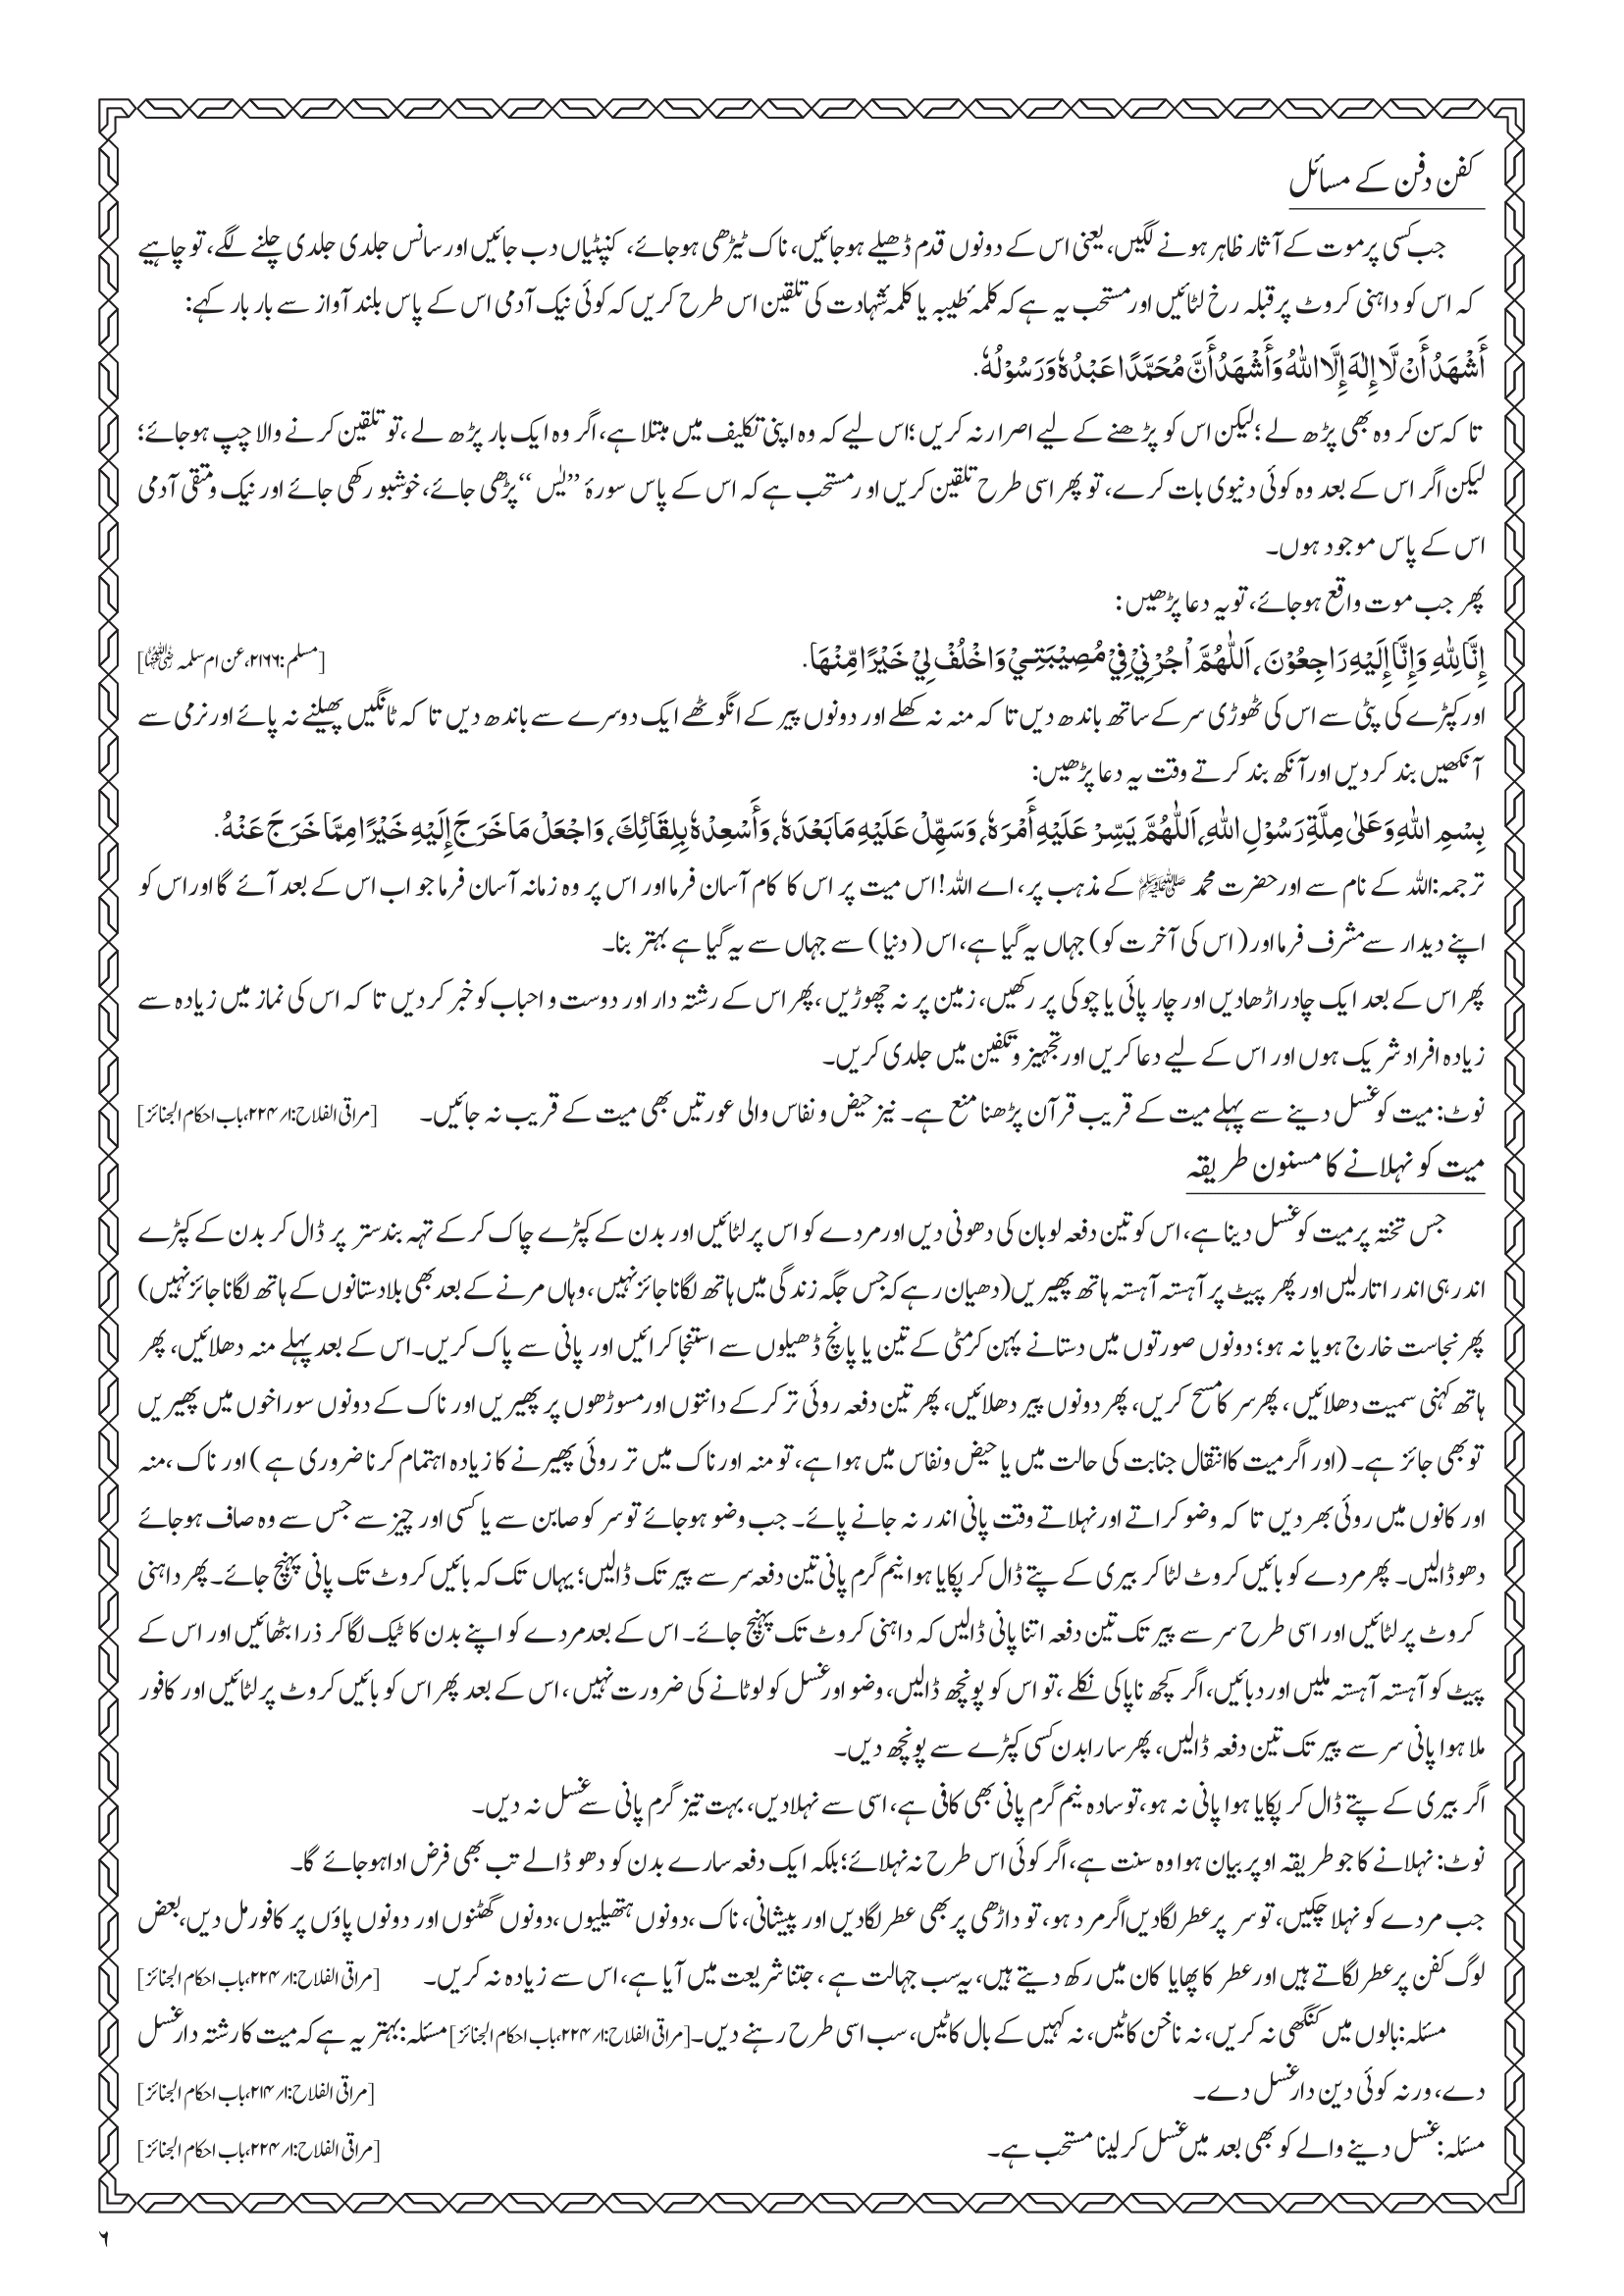 کفن دفن کے مسائل
جب کسی پر موت کے آثار ظاہر ہونے لگیں، یعنی اس کے دونوں قدم ڈھیلے ہوجائیں، ناک ٹیڑھی ہوجائے، کنپٹیاں دب جائیں اور سانس جلدی جلدی چلنے لگے، تو چاہیے
کہ اس کو داہنی کروٹ پر قبلہ رخ لٹائیں اور مستحب یہ ہے کہ کلمۂ طیبہ یا کلمۂ شہادت کی تلقین اس طرح کریں کہ کوئی نیک آدمی اس کے پاس بلند آواز سے بار بار کہے:
أَشْهَدُ أَنْ لَّا إِلٰهَ إِلَّا اللهُ وَأَشْهَدُ أَنَّ مُحَمَّدًا عَبْدُهٗ وَرَسُوْلُهٗ.
تا کہ سن کر وہ بھی پڑھ لے؛ لیکن اس کو پڑھنے کے لیے اصرار نہ کریں؛ اس لیے کہ وہ اپنی تکلیف میں مبتلا ہے، اگر وہ ایک بار پڑھ لے، تو تلقین کرنے والا چپ ہوجائے؛
لیکن اگر اس کے بعد وہ کوئی دنیوی بات کرے، تو پھر اسی طرح تلقین کریں او ر مستحب ہے کہ اس کے پاس سورۂ ’’یٰس‘‘ پڑھی جائے، خوشبو رکھی جائے اور نیک و متقی آدمی
اس کے پاس موجود ہوں۔
پھر جب موت واقع ہوجائے، تو یہ دعا پڑھیں:
إِنَّا لِلّٰهِ وَإِنَّا إِلَيْهِ رَاجِعُوْنَ، اَللّٰهُمَّ اْجُرْنِيْ فِيْ مُصِيْبَتِيْ وَاخْلُفْ لِيْ خَيْرًا مِّنْهَا. [مسلم: ۲۱۶۶، عن ام سلمہ رضی اللہ عنہا]
اور کپڑے کی پٹی سے اس کی ٹھوڑی سر کے ساتھ باندھ دیں تا کہ منہ نہ کھلے اور دونوں پیر کے انگوٹھے ایک دوسرے سے باندھ دیں تا کہ ٹانگیں پھیلنے نہ پائے اور نرمی سے
آنکھیں بند کردیں اور آنکھ بند کرتے وقت یہ دعا پڑھیں:
بِسْمِ اللهِ وَعَلٰى مِلَّةِ رَسُوْلِ اللهِ، اَللّٰهُمَّ يَسِّرْ عَلَيْهِ أَمْرَهٗ، وَسَهِّلْ عَلَيْهِ مَا بَعْدَهٗ، وَأَسْعِدْهُ بِلِقَائِكَ، وَاجْعَلْ مَا خَرَجَ إِلَيْهِ خَيْرًا مِمَّا خَرَجَ عَنْهُ.
ترجمہ: اللہ کے نام سے اور حضرت محمد ﷺ کے مذہب پر، اے اللہ! اس میت پر اس کا کام آسان فرما اور اس پر وہ زمانہ آسان فرما جو اب اس کے بعد آئے گا اور اس کو
اپنے دیدار سے مشرف فرما اور (اس کی آخرت کو) جہاں یہ گیا ہے، اس (دنیا) سے جہاں سے یہ گیا ہے بہتر بنا۔
پھر اس کے بعد ایک چادر اڑھادیں اور چار پائی یا چوکی پر رکھیں، زمین پر نہ چھوڑیں، پھر اس کے رشتہ دار اور دوست و احباب کو خبر کردیں تا کہ اس کی نماز میں زیادہ سے
زیادہ افراد شریک ہوں اور اس کے لیے دعا کریں اور تجہیز و تکفین میں جلدی کریں۔
نوٹ: میت کو غسل دینے سے پہلے میت کے قریب قرآن پڑھنا منع ہے۔ نیز حیض و نفاس والی عورتیں بھی میت کے قریب نہ جائیں۔ [مراقی الفلاح: ۱/۲۲۴، باب احکام الجنائز]
میت کو نہلانے کا مسنون طریقہ
جس تختہ پر میت کو غسل دینا ہے، اس کو تین دفعہ لوبان کی دھونی دیں اور مردے کو اس پر لٹائیں اور بدن کے کپڑے چاک کرکے تہہ بند ستر پر ڈال کر بدن کے کپڑے
اندر ہی اندر اتارلیں اور پھر پیٹ پر آہستہ آہستہ ہاتھ پھیریں (دھیان رہے کہ جس جگہ زندگی میں ہاتھ لگانا جائز نہیں، وہاں مرنے کے بعد بھی بلا دستانوں کے ہاتھ لگانا جائز نہیں)
پھر نجاست خارج ہو یا نہ ہو؛ دونوں صورتوں میں دستانے پہن کر مٹی کے تین یا پانچ ڈھیلوں سے استنجا کرائیں اور پانی سے پاک کریں۔ اس کے بعد پہلے منہ دھلائیں، پھر
ہاتھ کہنی سمیت دھلائیں، پھر سر کا مسح کریں، پھر دونوں پیر دھلائیں، پھر تین دفعہ روئی تر کرکے دانتوں اور مسوڑھوں پر پھیریں اور ناک کے دونوں سوراخوں میں پھیریں
تو بھی جائز ہے۔ (اور اگر میت کا انتقال جنابت کی حالت میں یا حیض و نفاس میں ہوا ہے، تو منہ اور ناک میں تر روئی پھیرنے کا زیادہ اہتمام کرنا ضروری ہے) اور ناک، منہ
اور کانوں میں روئی بھردیں تا کہ وضو کراتے اور نہلاتے وقت پانی اندر نہ جانے پائے۔ جب وضو ہوجائے تو سر کو صابن سے یا کسی اور چیز سے جس سے وہ صاف ہوجائے
دھوڈالیں۔ پھر مردے کو بائیں کروٹ لٹا کر بیری کے پتے ڈال کر پکایا ہوا نیم گرم پانی تین دفعہ سر سے پیر تک ڈالیں؛ یہاں تک کہ بائیں کروٹ تک پانی پہنچ جائے۔ پھر داہنی
کروٹ پر لٹائیں اور اسی طرح سر سے پیر تک تین دفعہ اتنا پانی ڈالیں کہ داہنی کروٹ تک پہنچ جائے۔ اس کے بعد مردے کو اپنے بدن کا ٹیک لگا کر ذرا بٹھائیں اور اس کے
پیٹ کو آہستہ آہستہ ملیں اور دبائیں، اگر کچھ ناپاکی نکلے، تو اس کو پونچھ ڈالیں، وضو اور غسل کو لوٹانے کی ضرورت نہیں، اس کے بعد پھر اس کو بائیں کروٹ پر لٹائیں اور کافور
ملا ہوا پانی سر سے پیر تک تین دفعہ ڈالیں، پھر سارا بدن کسی کپڑے سے پونچھ دیں۔
اگر بیری کے پتے ڈال کر پکایا ہوا پانی نہ ہو، تو سادہ نیم گرم پانی بھی کافی ہے، اسی سے نہلادیں، بہت تیز گرم پانی سے غسل نہ دیں۔
نوٹ: نہلانے کا جو طریقہ اوپر بیان ہوا وہ سنت ہے، اگر کوئی اس طرح نہ نہلائے؛ بلکہ ایک دفعہ سارے بدن کو دھو ڈالے تب بھی فرض ادا ہوجائے گا۔
جب مردے کو نہلا چکیں، تو سر پر عطر لگادیں اگر مرد ہو، تو داڑھی پر بھی عطر لگادیں اور پیشانی، ناک، دونوں ہتھیلیوں، دونوں گھٹنوں اور دونوں پاؤں پر کافور مل دیں، بعض
لوگ کفن پر عطر لگاتے ہیں اور عطر کا پھایا کان میں رکھ دیتے ہیں، یہ سب جہالت ہے، جتنا شریعت میں آیا ہے، اس سے زیادہ نہ کریں۔ [مراقی الفلاح: ۱/۲۲۴، باب احکام الجنائز]
مسئلہ: بالوں میں کنگھی نہ کریں، نہ ناخن کاٹیں، نہ کہیں کے بال کاٹیں، سب اسی طرح رہنے دیں۔ [مراقی الفلاح: ۱/۲۲۴، باب احکام الجنائز] مسئلہ: بہتر یہ ہے کہ میت کا رشتہ دار غسل
دے، ورنہ کوئی دین دار غسل دے۔ [مراقی الفلاح: ۱/۲۱۴، باب احکام الجنائز]
مسئلہ: غسل دینے والے کو بھی بعد میں غسل کرلینا مستحب ہے۔ [مراقی الفلاح: ۱/۲۲۴، باب احکام الجنائز]
۶